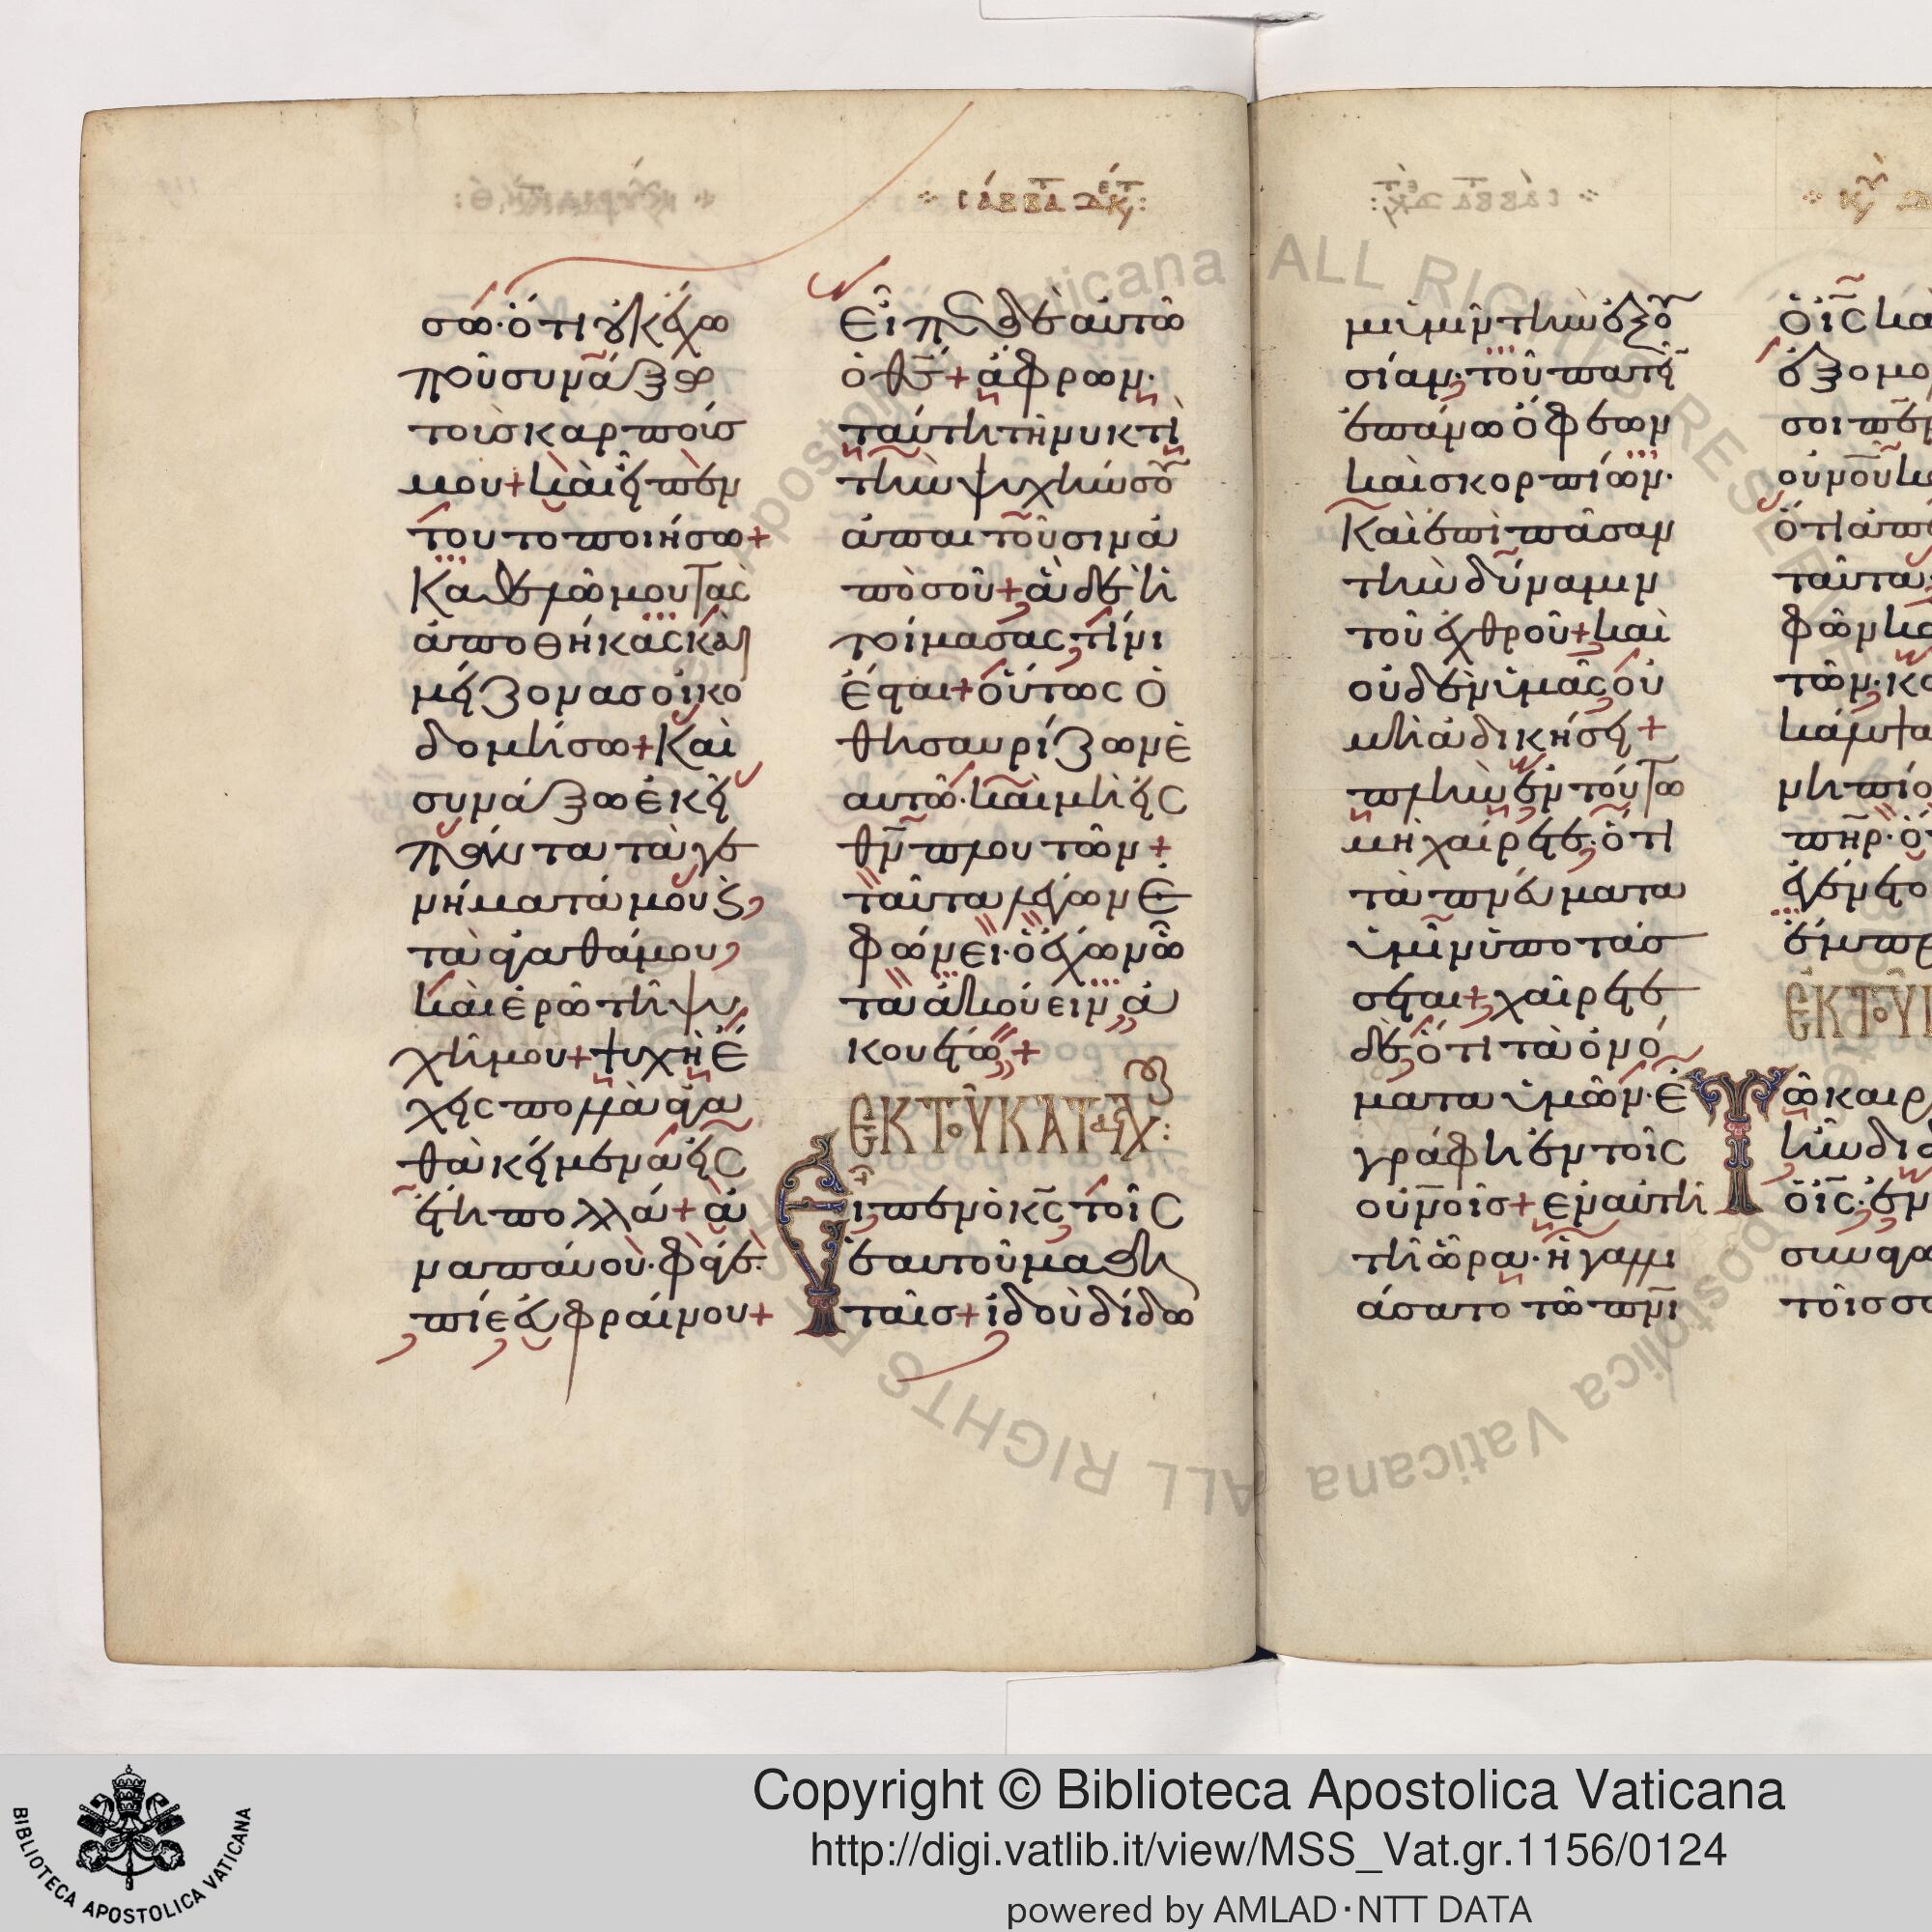 σάββατ δ κ ετ:
σω· ὅτι οὐκ ἔχω
ποῦ συνάξω
τοὺς καρποὺς
μου + καὶ εἶπεν
τοῦτο ποιήσω +
Καθελῶ μου τὰς
ἀποθήκας καὶ
μείζονας οἰκο
δομήσω + Καὶ
συνάξω ἐκεῖ
πάντα τὰ γε
νήματά μου ϗ
τὰ ἀγαθά μου,
καὶ ἐρῶ τῆ ψυ
χῆ μου + ψυχὴ ἔ
χεις πολλὰ ἀγα
θὰ κείμενα εἰς
ἔτη πολλά + ἀ
ναπαύου· φάγε·
πίε εὐφραίνου +
Εἶπε δὲ αὐτῶ
ὁ θς + ἄφρων·
ταύτη τῆ νυκτὶ
τὴν ψυχήν σου
ἀπαιτοῦσιν ἀ
πὸ σοῦ + ἃ δὲ ἡ
τοίμασας, τίνι
ἔσται + οὕτως ὁ
θησαυρίζων ἑ
αυτῶ· καὶ μὴ εἰς
θν πλουτῶν +
ταῦτα λέγων ἐ
φώνει· ὁ ἔχων ὦ
τα ἀκούειν, ἀ
κουέτω +
ΕΚ ΤΟΥ ΚΑΤ ΛΟΥΧ:
Εἶπεν ὁ κς τοῖς
ἑαυτοῦ μαθη
ταῖς + ἰδοὺ δίδω
μι ὑμῖν τὴν ἐξου
σίαν, τοῦ πατεῖ
ἐπάνω ὄφεων
καὶ σκορπίων·
Καὶ ἐπὶ πᾶσαν
τὴν δύναμιν
τοῦ ἐχθροῦ + καὶ
οὐδὲν ὑμᾶς οὐ
μὴ ἀδικήσει +
πλὴν ἐν τούτω
μὴ χαίρετε· ὅτι
τὰ πνεύματα
ὑμῖν ὑποτάσ
σεται + χαίρετε
δὲ, ὅτι τὰ ὀνό
ματα ὑμῶν· ἐ
γράφη ἐν τοῖς
οὐνοῖς + ἐν αὐτῆ
τῆ ὥρα· ἠγαλλι
άσατο τῶ πνι
ὁ ις κα
ἐξομο
σοι πε
οὐνοῦ κ
ὅτι ἀπ
ταῦτα
φῶν κα
τῶν· κα
κάλυψα
νηπίο
πηρ· ὅ
ἐγένετο
ἔμπρ
ΕΚ ΤΟΥ
Τῶ καιρ
ἦν διδ
ὁ ις· ἐν
συναγω
τοῖς σα
Copyright © Biblioteca Apostolica Vaticana
http://digi.vatlib.it/view/MSS_Vat.gr.1156/0124
powered by AMLAD·NTT DATA
BIBLIOTECA APOSTOLICA VATICANA